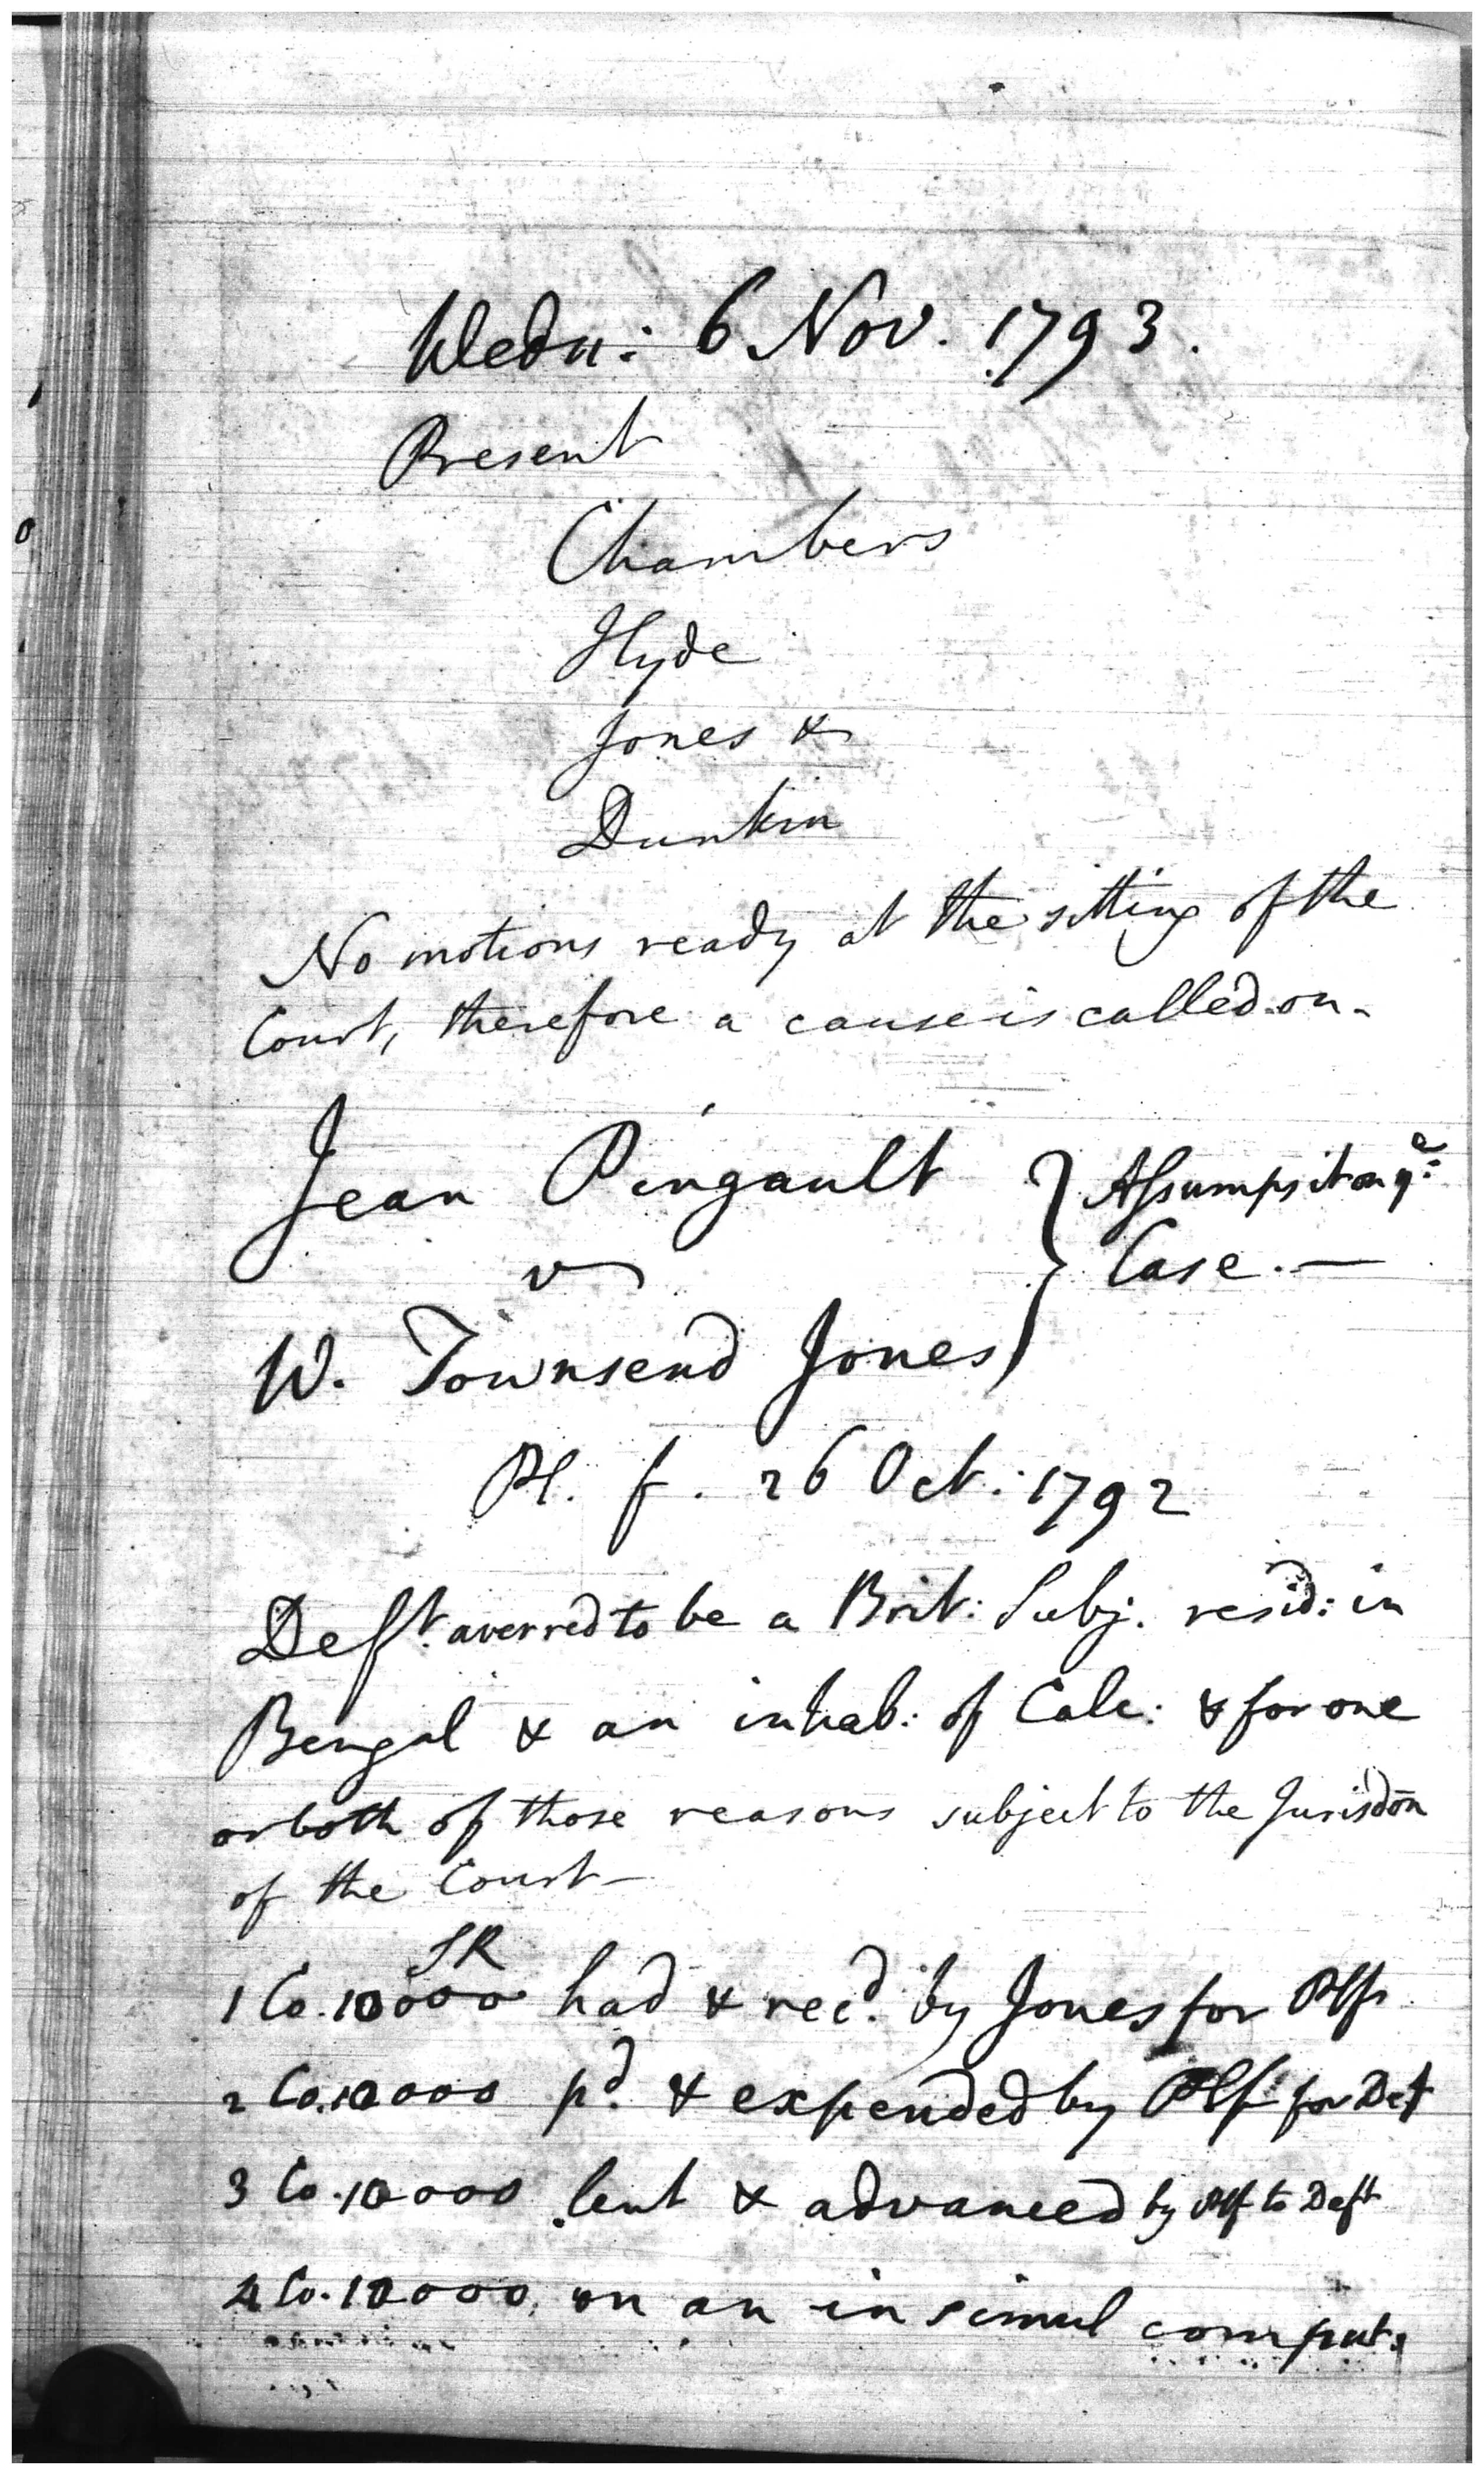 Wedn: 6 Nov. 1793.
Present
Chambers
Hyde
Jones &
Dunkin
No motions ready at the sitting of the
Court, therefore a cause is called on.
Jean Pingault } Assumpsit on ye
v } Case. —
W. Townsend Jones
Pl. f. 26 Oct: 1792
Deft. averred to be a Brit: Subj. resid: in
Bengal & an inhab: of Calc: & for one
or both of those reasons subject to the Jurisdōn
of the Court —
SR
1 Co. 10000 had & recd. by Jones for Plf
2 Co. 10000 pd. & expended by Plf for Deft
3 Co. 10000 lent & advanced by Plf to Deft
4 Co. 10000 on an insimul comput: